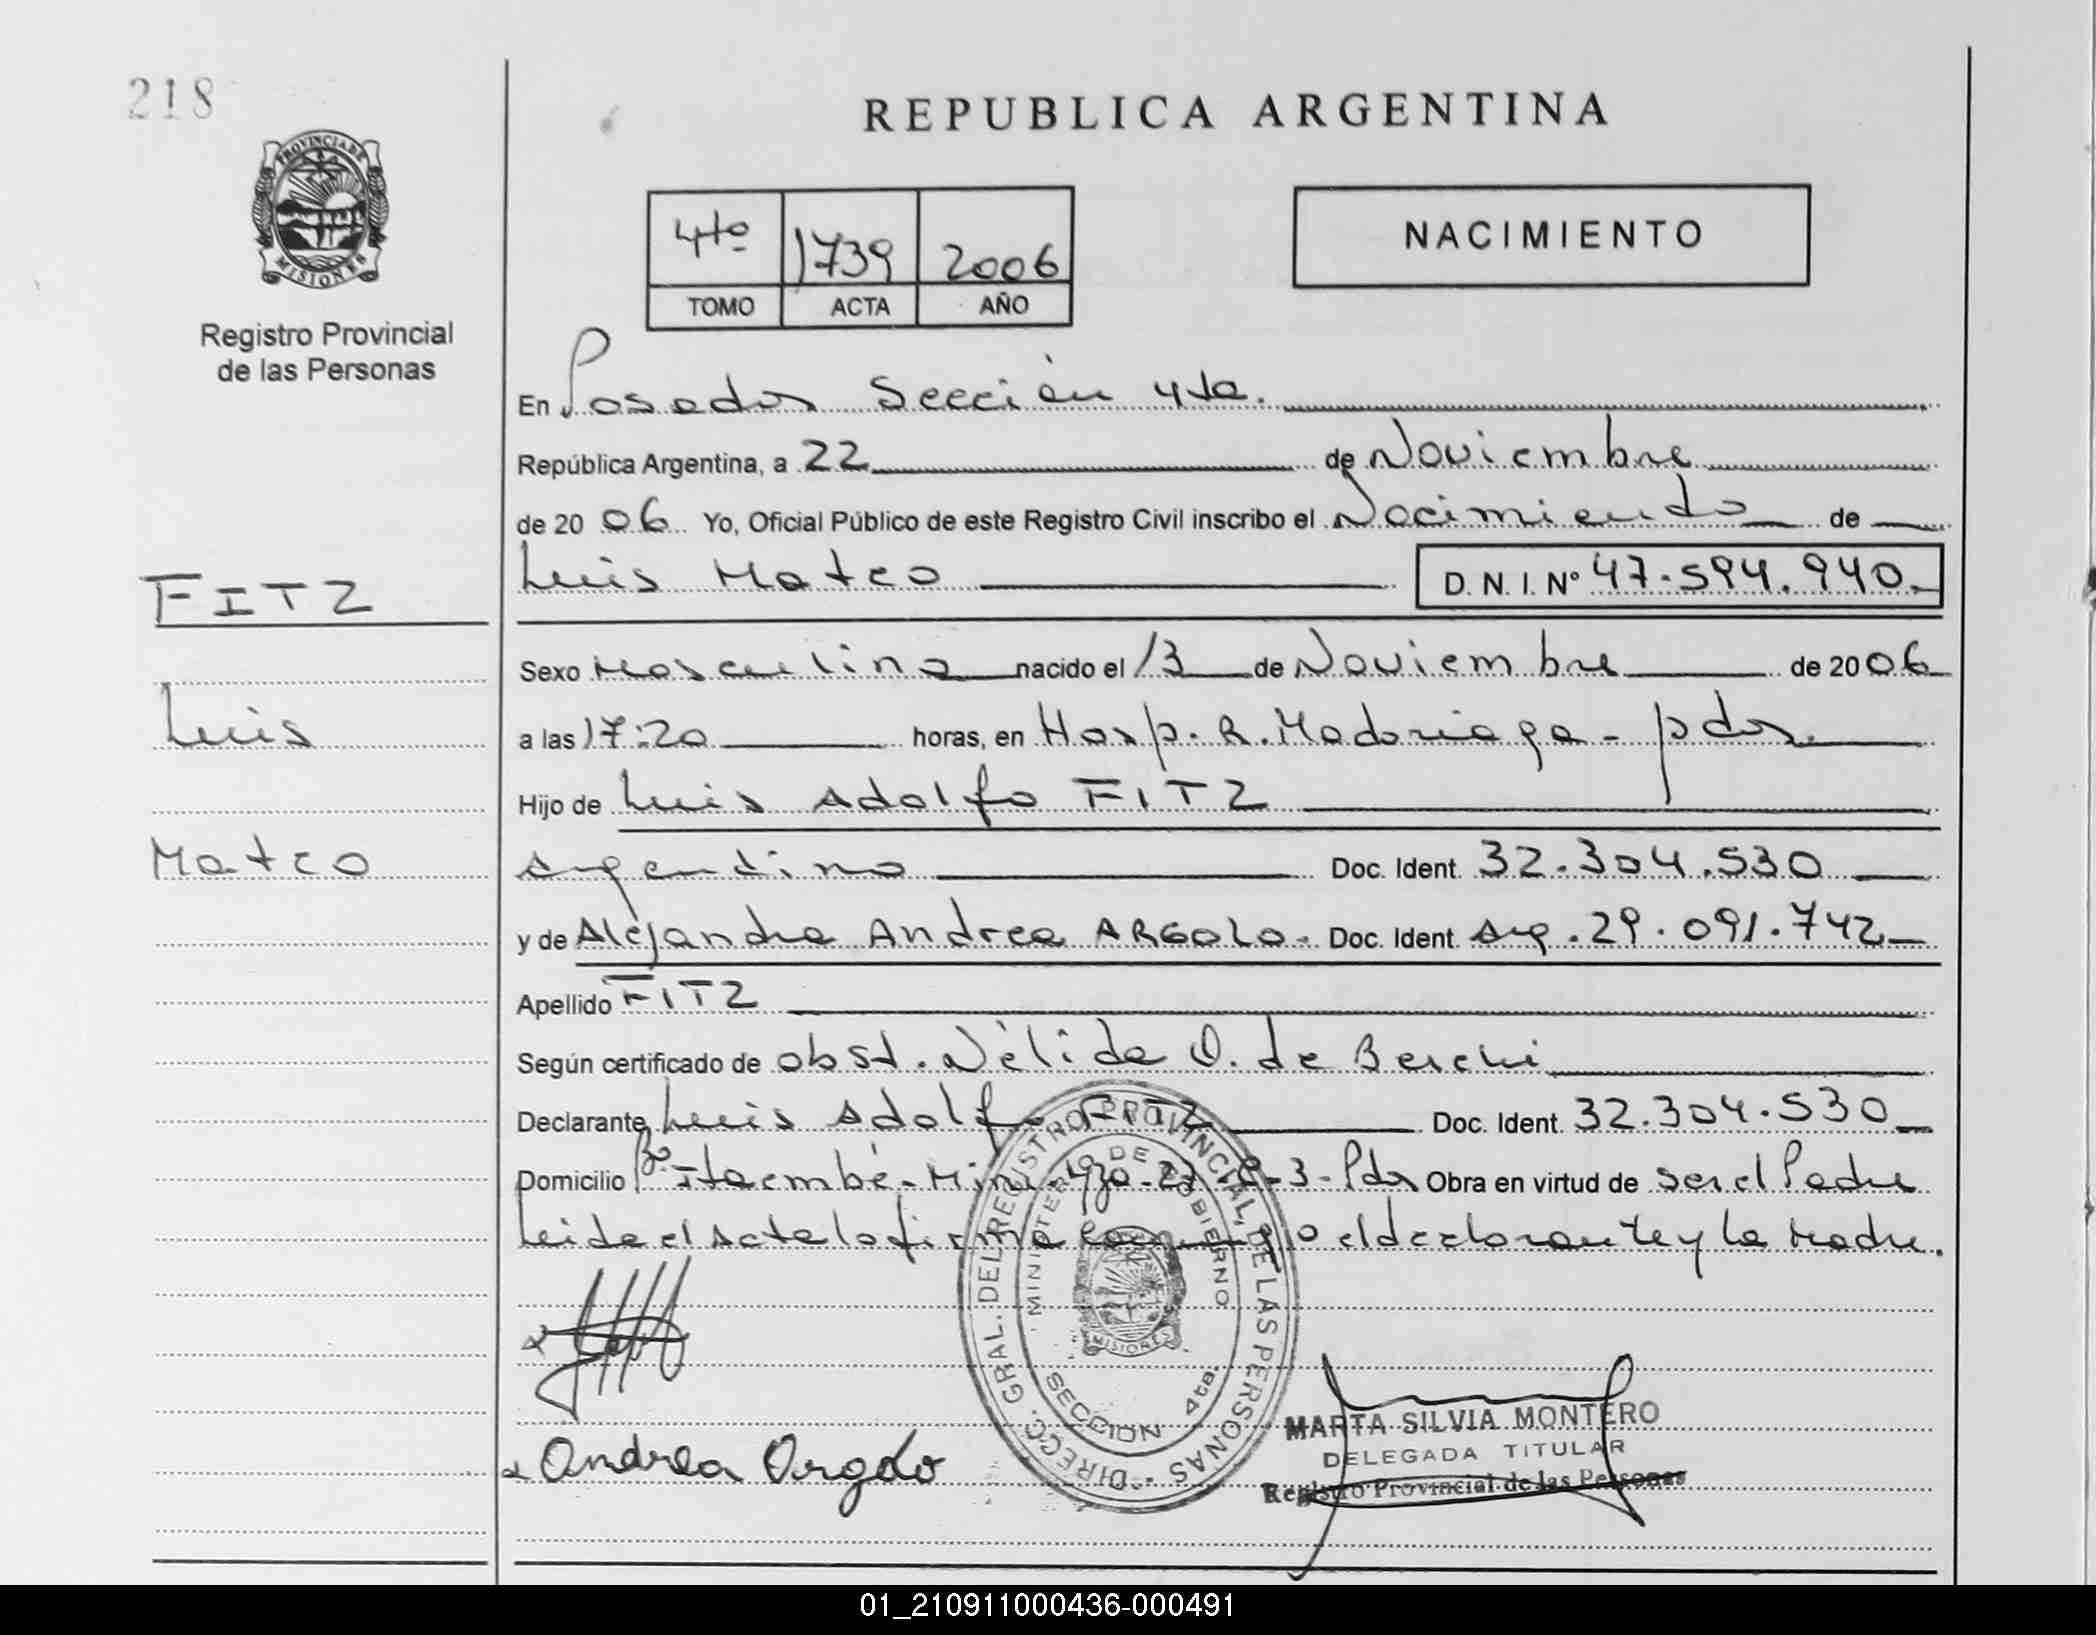 218
REPUBLICA ARGENTINA
PROVINCIA DE
MISIONES
Registro Provincial
de las Personas
4to 1739 2006
TOMO ACTA AÑO
NACIMIENTO
En Posadas Sección 4ta.
República Argentina, a 22 de Noviembre
de 2006 Yo, Oficial Público de este Registro Civil inscribo el Nacimiento de
Luis Mateo D.N.I.Nº 47.594.940.
FITZ
Luis
Mateo
Sexo Masculino nacido el 13 de Noviembre de 2006
a las 17:20 horas, en Hosp. R. Madariaga - pdas.
Hijo de Luis Adolfo FITZ
argentino Doc. Ident. 32.304.530
y de Alejandra Andrea ARGOLO. Doc. Ident. Arg. 29.091.742
Apellido FITZ
Según certificado de obst. Nélida O. de
Declarante Luis Adolfo FITZ Doc. Ident. 32.304.530
Domicilio Bº Itaembé - Miní - C-3 - Pdas Obra en virtud de ser el Padre
Leida el Acta la firma el declarante y la Madre.
DIRECC. GRAL. DEL REGISTRO PROVINCIAL DE LAS PERSONAS
MINISTERIO DE GOBIERNO
MISIONES
SECCION 4ta.
Andrea Orgolo
MARTA SILVIA MONTERO
DELEGADA TITULAR
Registro Provincial de las Personas
01_210911000436-000491